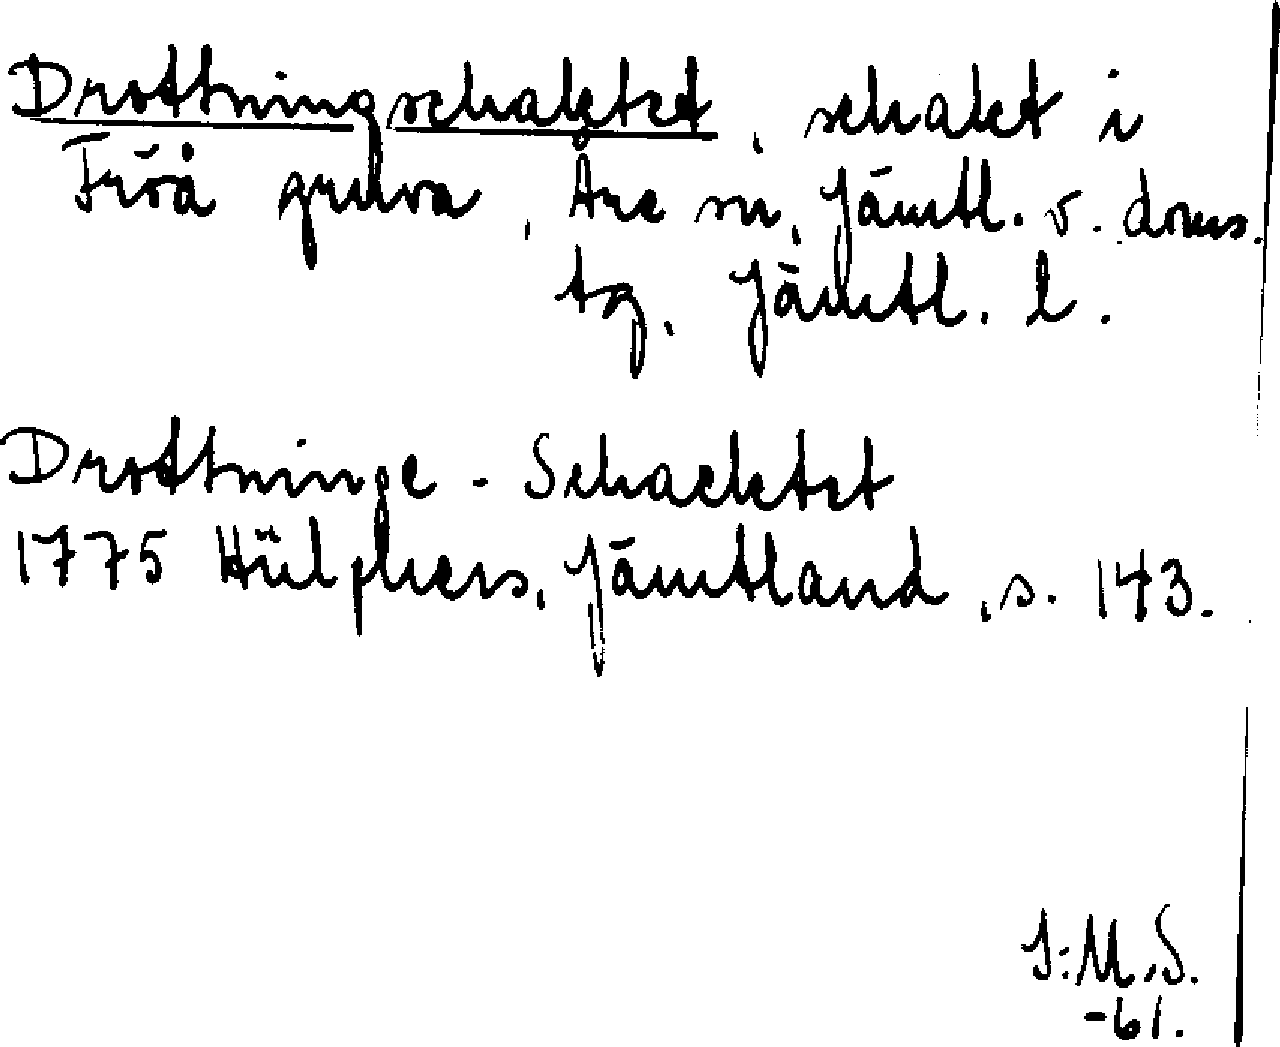 Drottningschaktet, schakt i
Fröå gruva, Åre sn, Jämtl. v. doms.
tg. Jämtl. l.
Drottninge - Schacktet
1775 Hülphers, Jämtland, s. 143.
I:M.S.
-61.